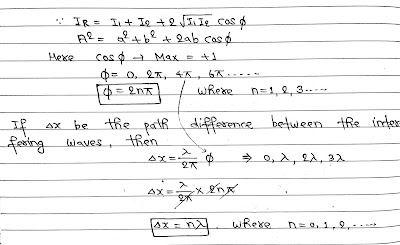 ∵ I_R = I₁ + I₂ + 2√I₁I₂ cosϕ
A² = a² + b² + 2ab cosϕ
Here cosϕ → Max = +1
ϕ = 0, 2π, 4π, 6π.....
ϕ = 2nπ where n=1,2,3....
If Δx be the path difference between the inter
fering waves, then
Δx = λ/2π ϕ ⇒ 0, λ, 2λ, 3λ
Δx = λ/2π × 2nπ
Δx = nλ. where n=0,1,2,.....